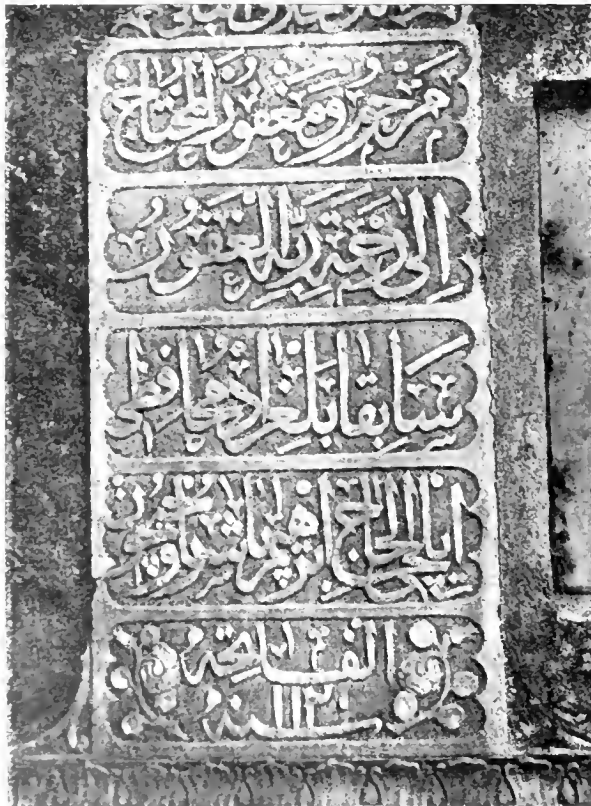 مرحوم و مغفور المحتاج
الى رحمة ربه الغفور
سابقا بلغراد محافظى
الحاج ابراهيم پاشا روحيچون
الفاتحه
سنه ١١٢٠